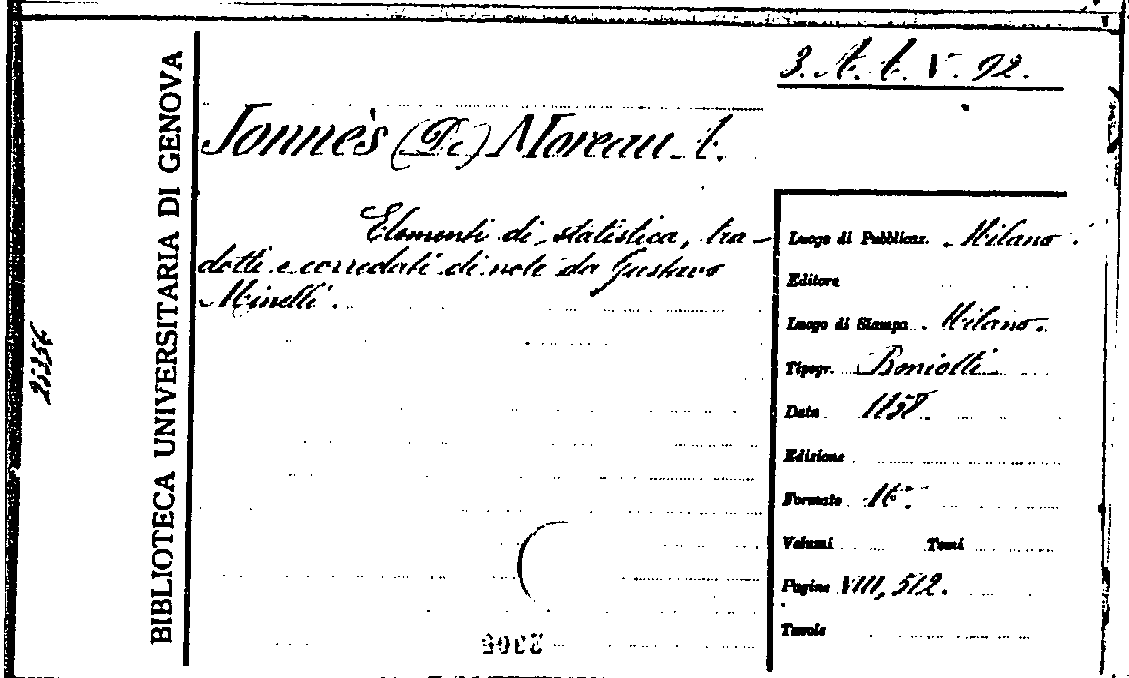 BIBLIOTECA UNIVERSITARIA DI GENOVA
3. A. t. V. 92.
Jonnès (De) Moreau A.
Elementi di statistica, tra-
dotti e corredati di note da Gustavo
Minelli.
Luogo di Pubblicaz. Milano
Editore
Luogo di Stampa Milano.
Tipogr. Boniotti
Data 1858.
Edizione
Formato 16°.
Volumi Tomi
Pagine VIII, 512.
Tavole
25356